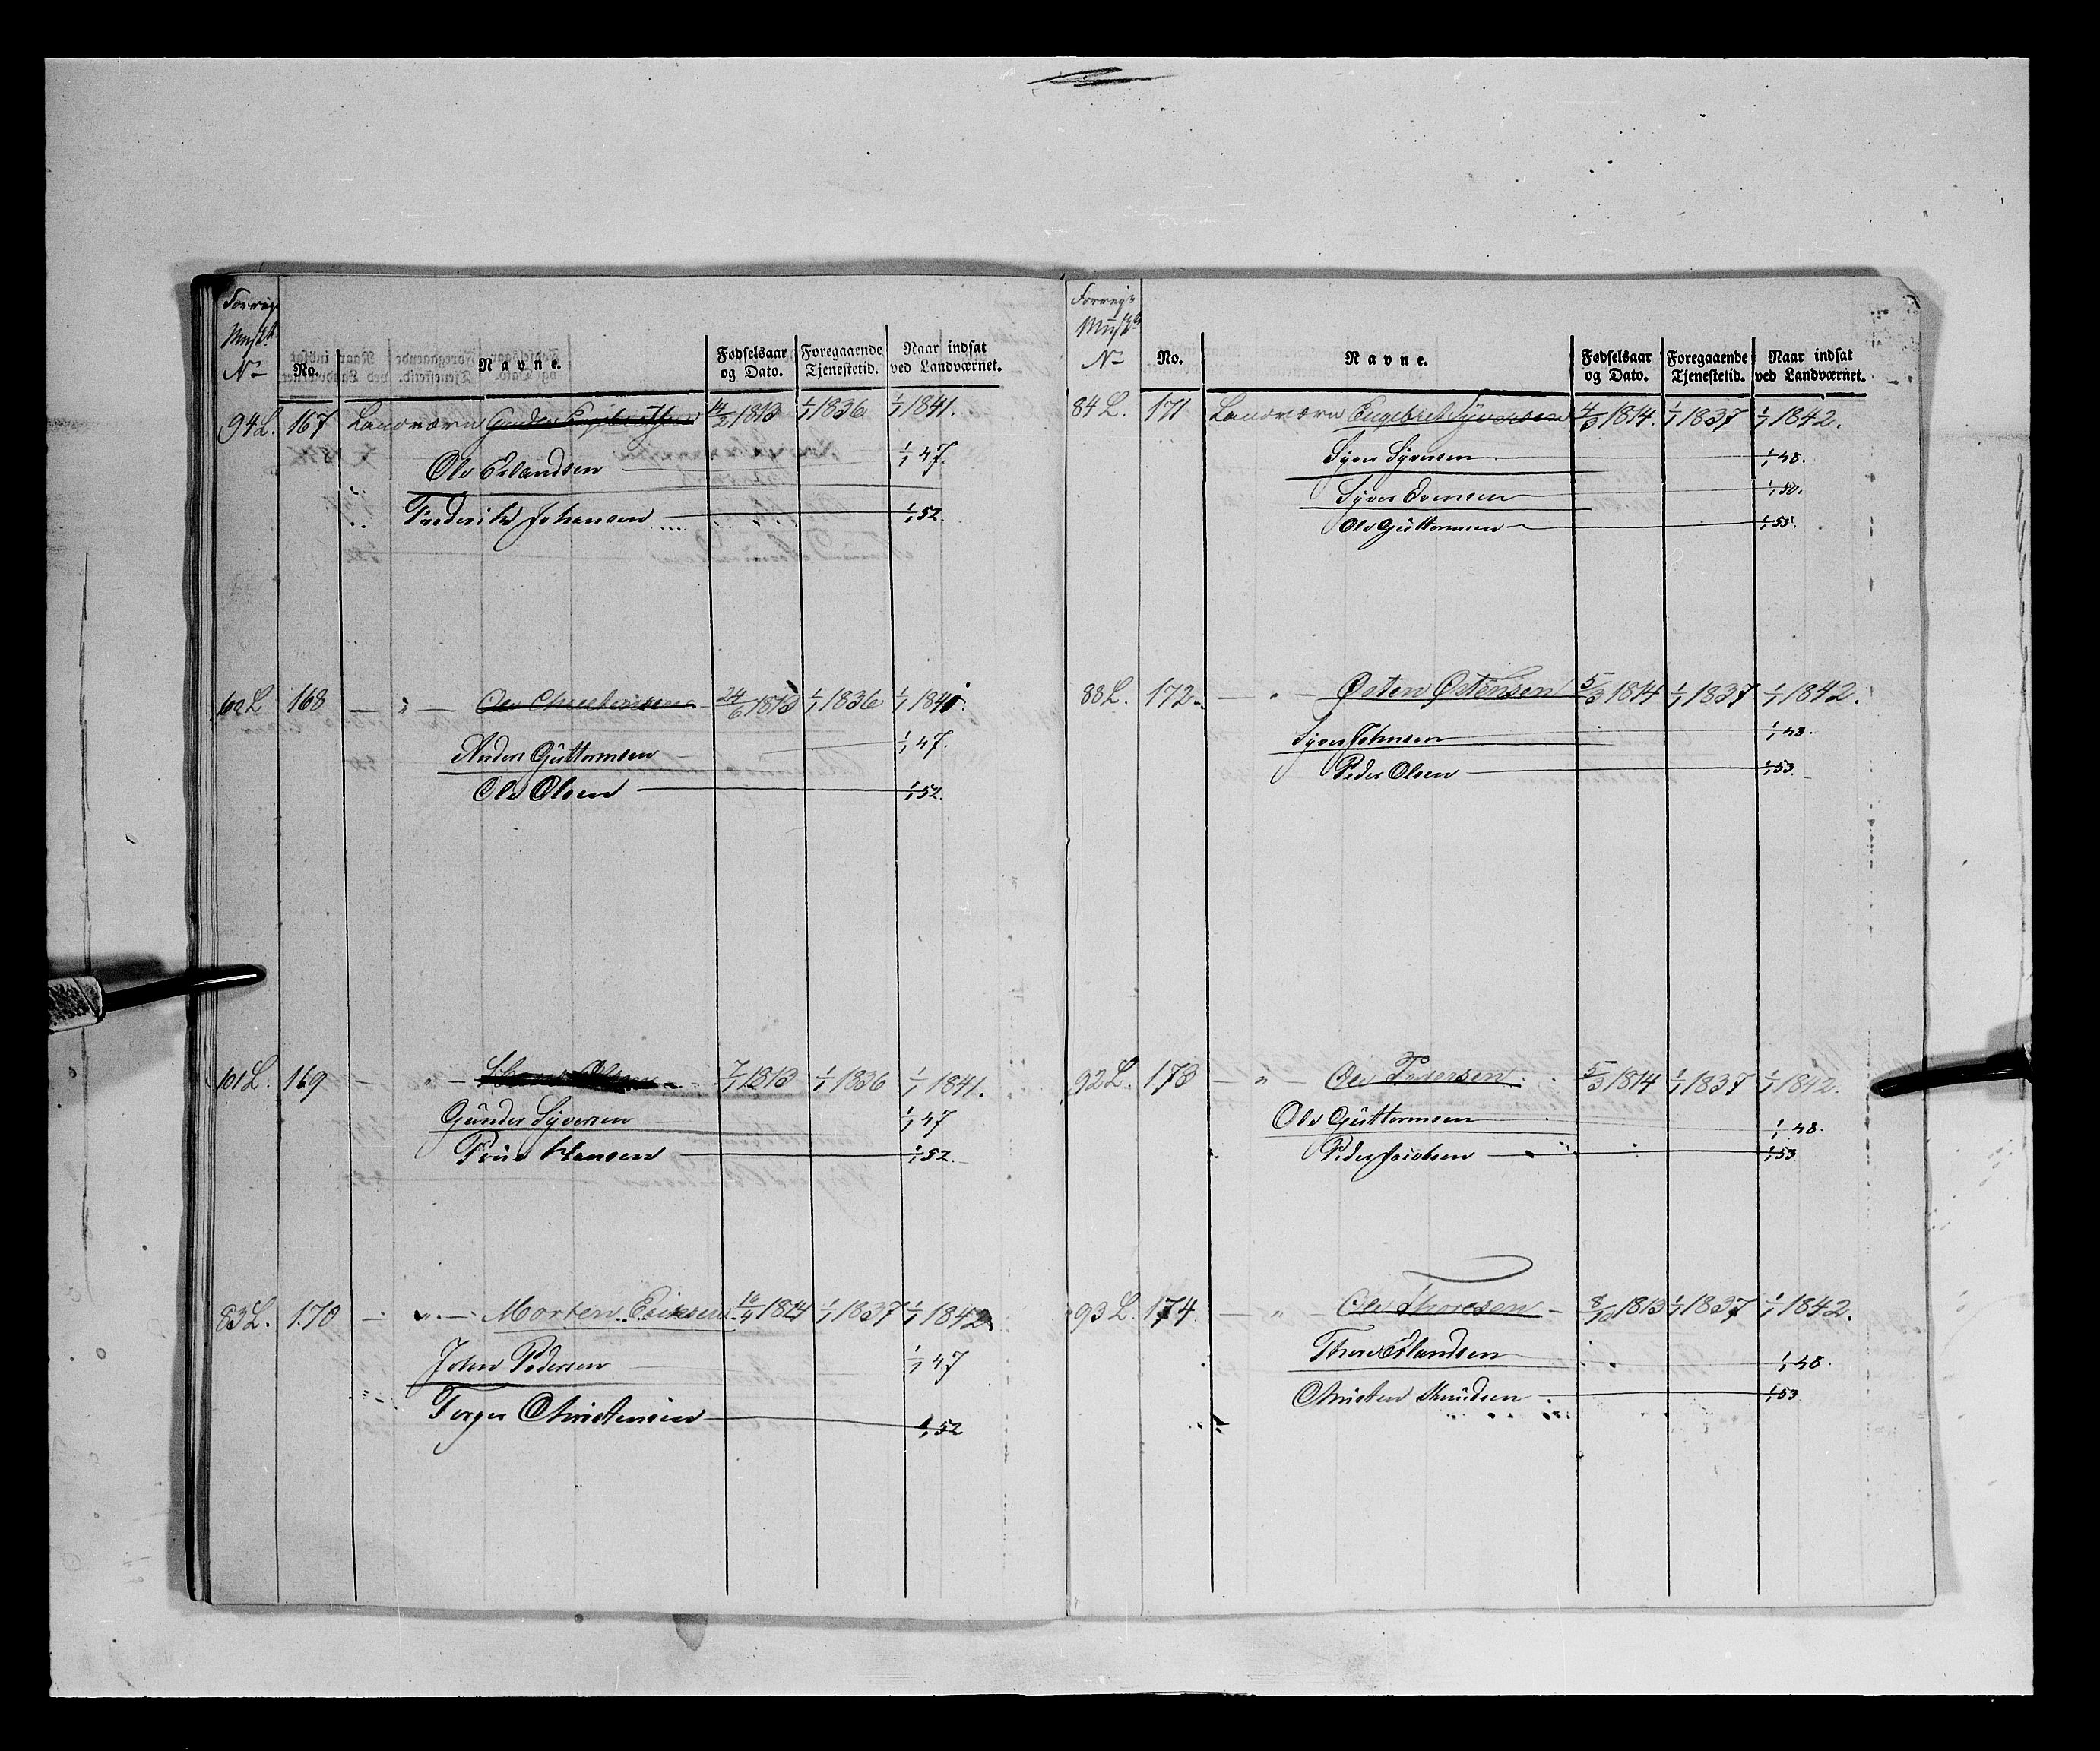 Forrige
Musk.
No
No.
Navne.
Fødselsaar og Dato.
Foregaaende Tjenestetid.
Naar indsat ved Landværnet.
94 L. 167 Landværn Gunder Engebrethsen 14/2 1813 1/1 1836 1/1 1841.
Ole Erlandsen 1/1 47.
Frederik Johansen 1/1 52.
102 L 168 — " — Ole Christensen 24/6 1813 1/1 1836 1/1 1841.
Anders Guttormsen 1/1 47.
Ole Olsen 1/1 52.
101 L. 169 — " — Olsen 7/1 1813 1/1 1836 1/1 1841.
Gunder Syversen 1/1 47
Hansen 1/1 52
83 L. 170 — " — Morten Eriksen 16/4 1814 1/1 1837 1/1 1842
John Pedersen 1/1 47
Torger Christensen 1/1 52
Forrige
Musk.
No
No.
Navne.
Fødselsaar og Dato.
Foregaaende Tjenestetid.
Naar indsat ved Landværnet.
84 L. 171 Landværn Engebreth Syversen 4/3 1814. 1/1 1837 1/1 1842.
Syver Syversen 1/1 48.
Syver Evensen 1/1 50.
Ole Guttormsen 1/1 55.
88 L. 172 — " — Østen Østensen 5/3 1814 1/1 1837 1/1 1842.
Syver Johnsen 1/1 48.
Peder Olsen 1/1 53.
92 L. 173 — " — Ole Pedersen 5/3 1814 1/1 1837 1/1 1842.
Ole Guttormsen 1/1 48.
Peder Jacobsen 1/1 53
93 L. 174 — " — Ole Thoresen 8/10 1813 1/1 1837 1/1 1842.
Thore Erlandsen 1/1 48.
Christen Knudsen 1/1 53